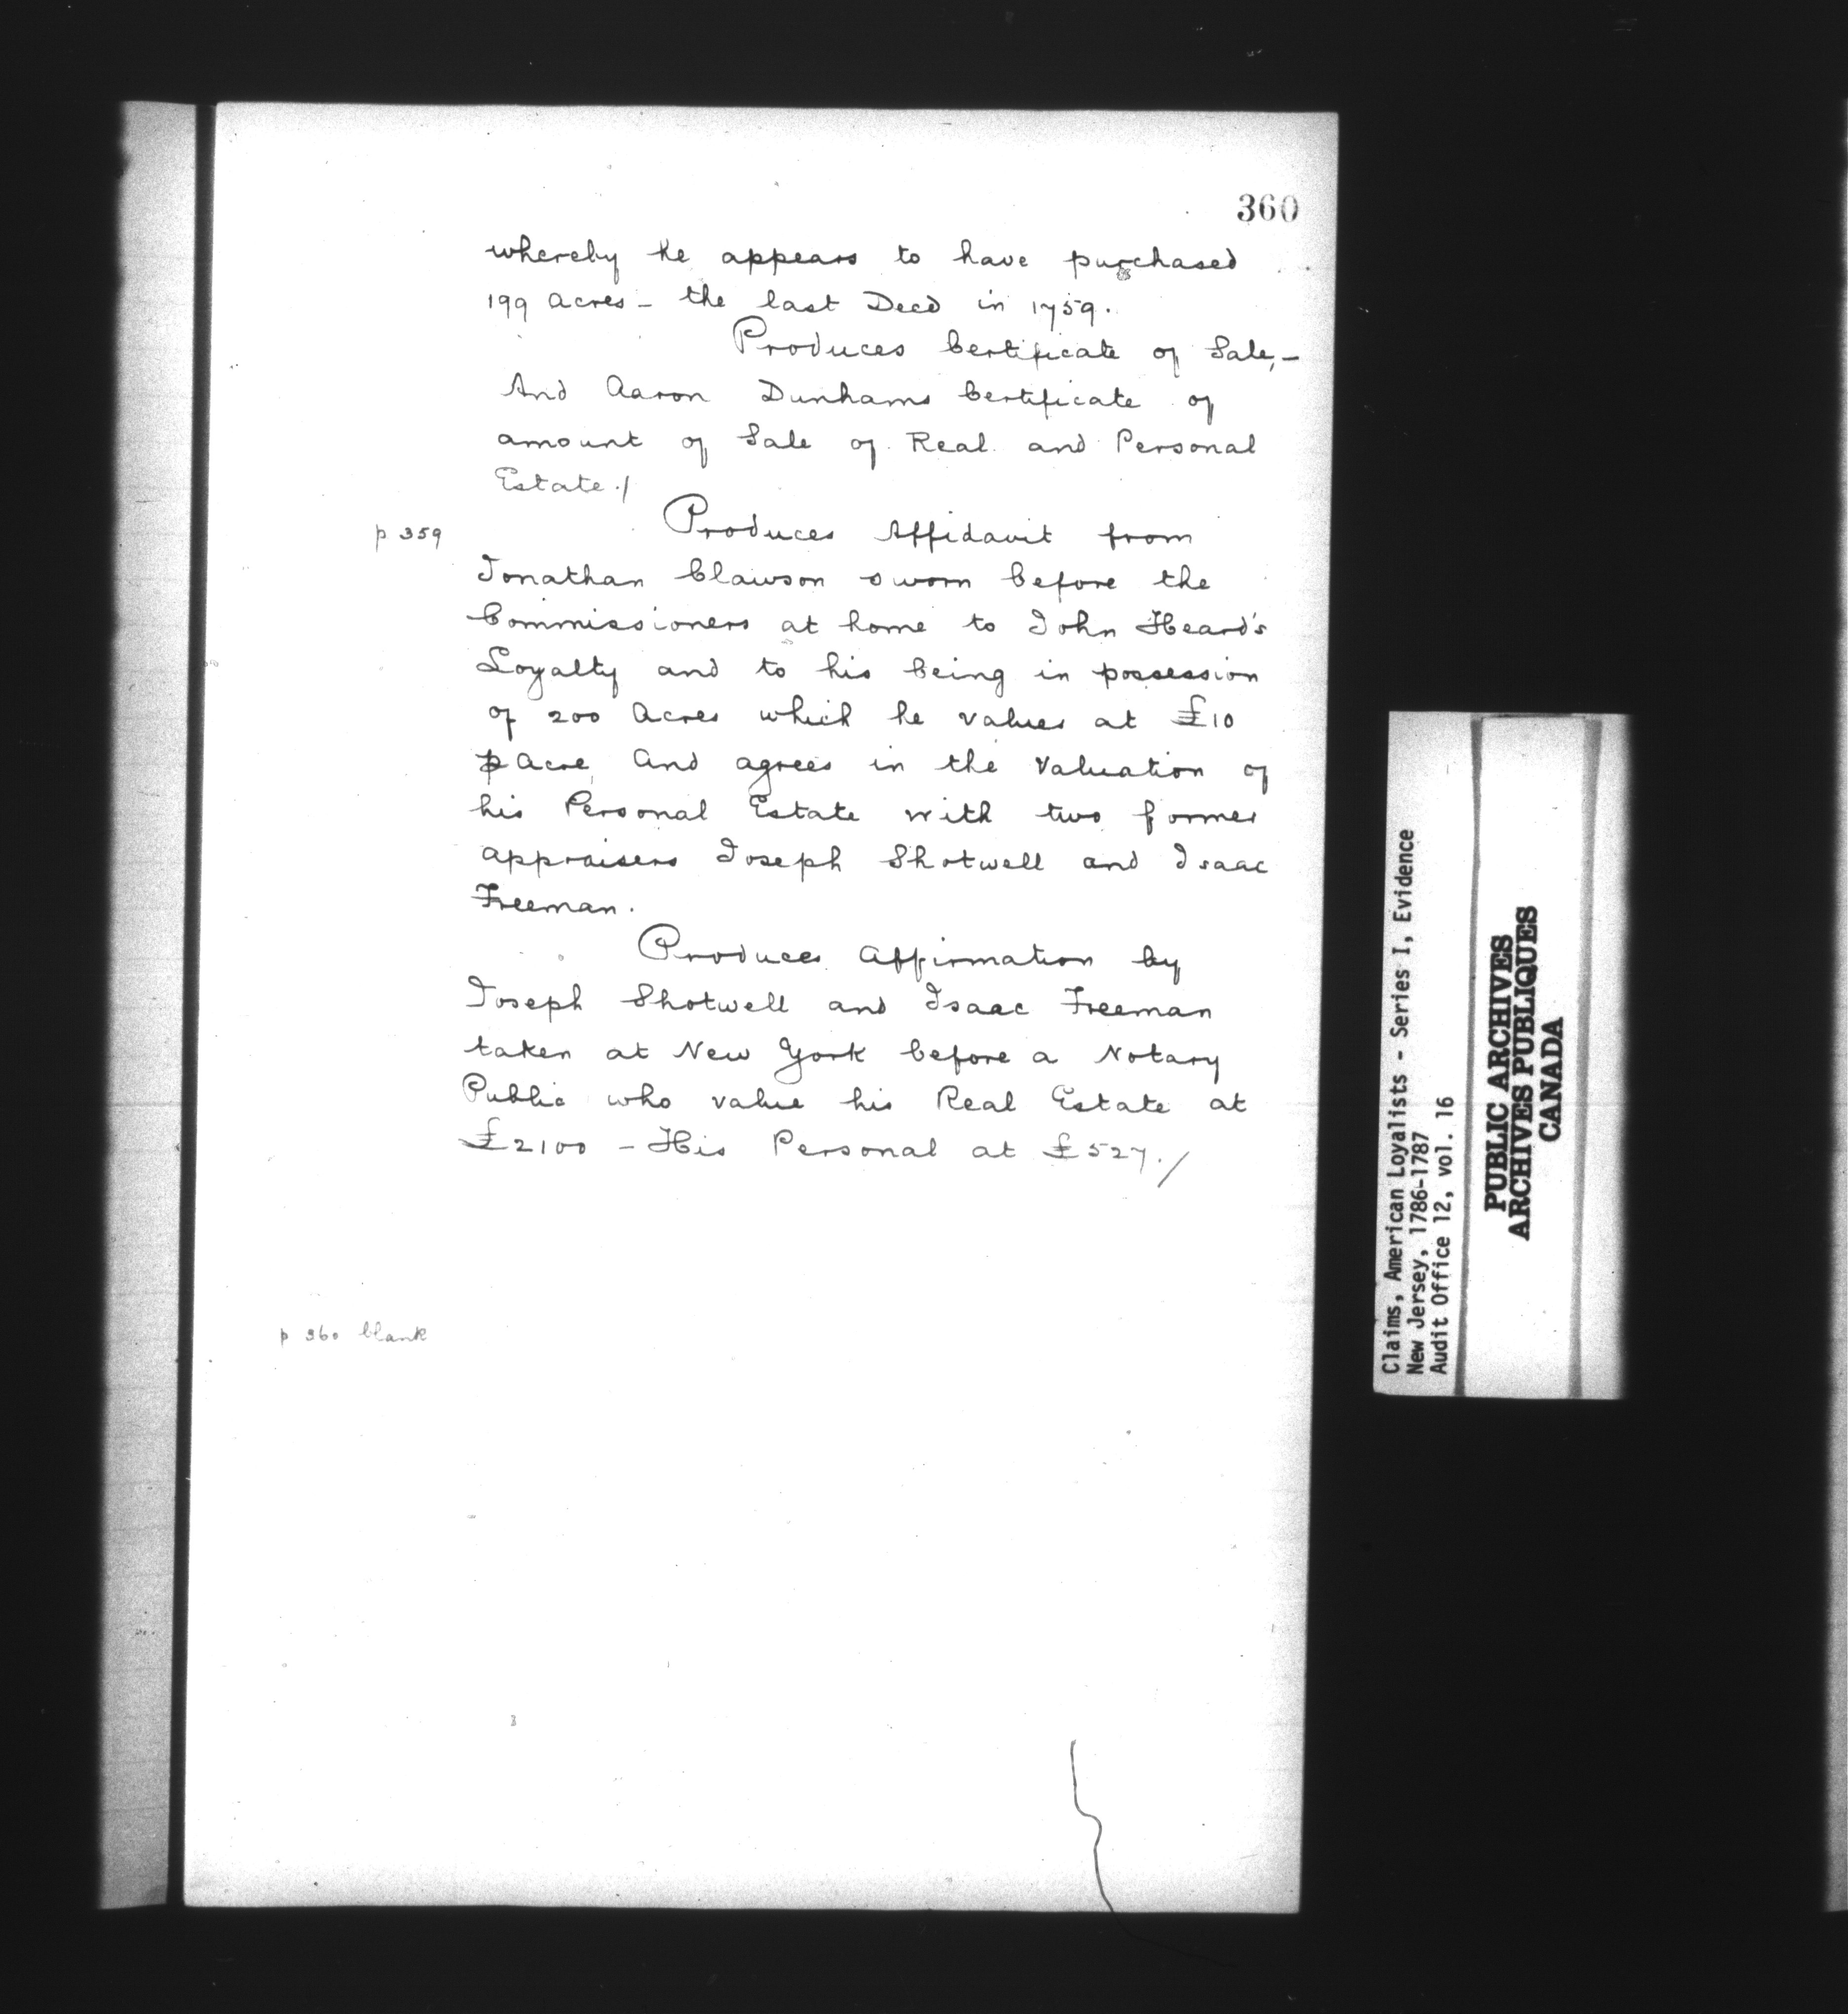 360
whereby he appears to have purchased
199 Acres - the last Deed in 1759.
Produces Certificate of Sale, -
And Aaron Dunhams Certificate of
amount of Sale of Real and Personal
Estate./
p 359
Produces Affidavit from
Jonathan Clawson sworn before the
Commissioners at home to John Heard's
Loyalty and to his being in possession
of 200 Acres which he values at £10
p Acre and agrees in the Valuation of
his Personal Estate with two former
appraisers Joseph Shotwell and Isaac
Freeman.
Produces Affirmation by
Joseph Shotwell and Isaac Freeman
taken at New York before a Notary
Public who value his Real Estate at
£2100 - His Personal at £527./
p 360 blank
Claims, American Loyalists - Series I, Evidence
New Jersey, 1786-1787
Audit Office 12, vol. 16
PUBLIC ARCHIVES
ARCHIVES PUBLIQUES
CANADA